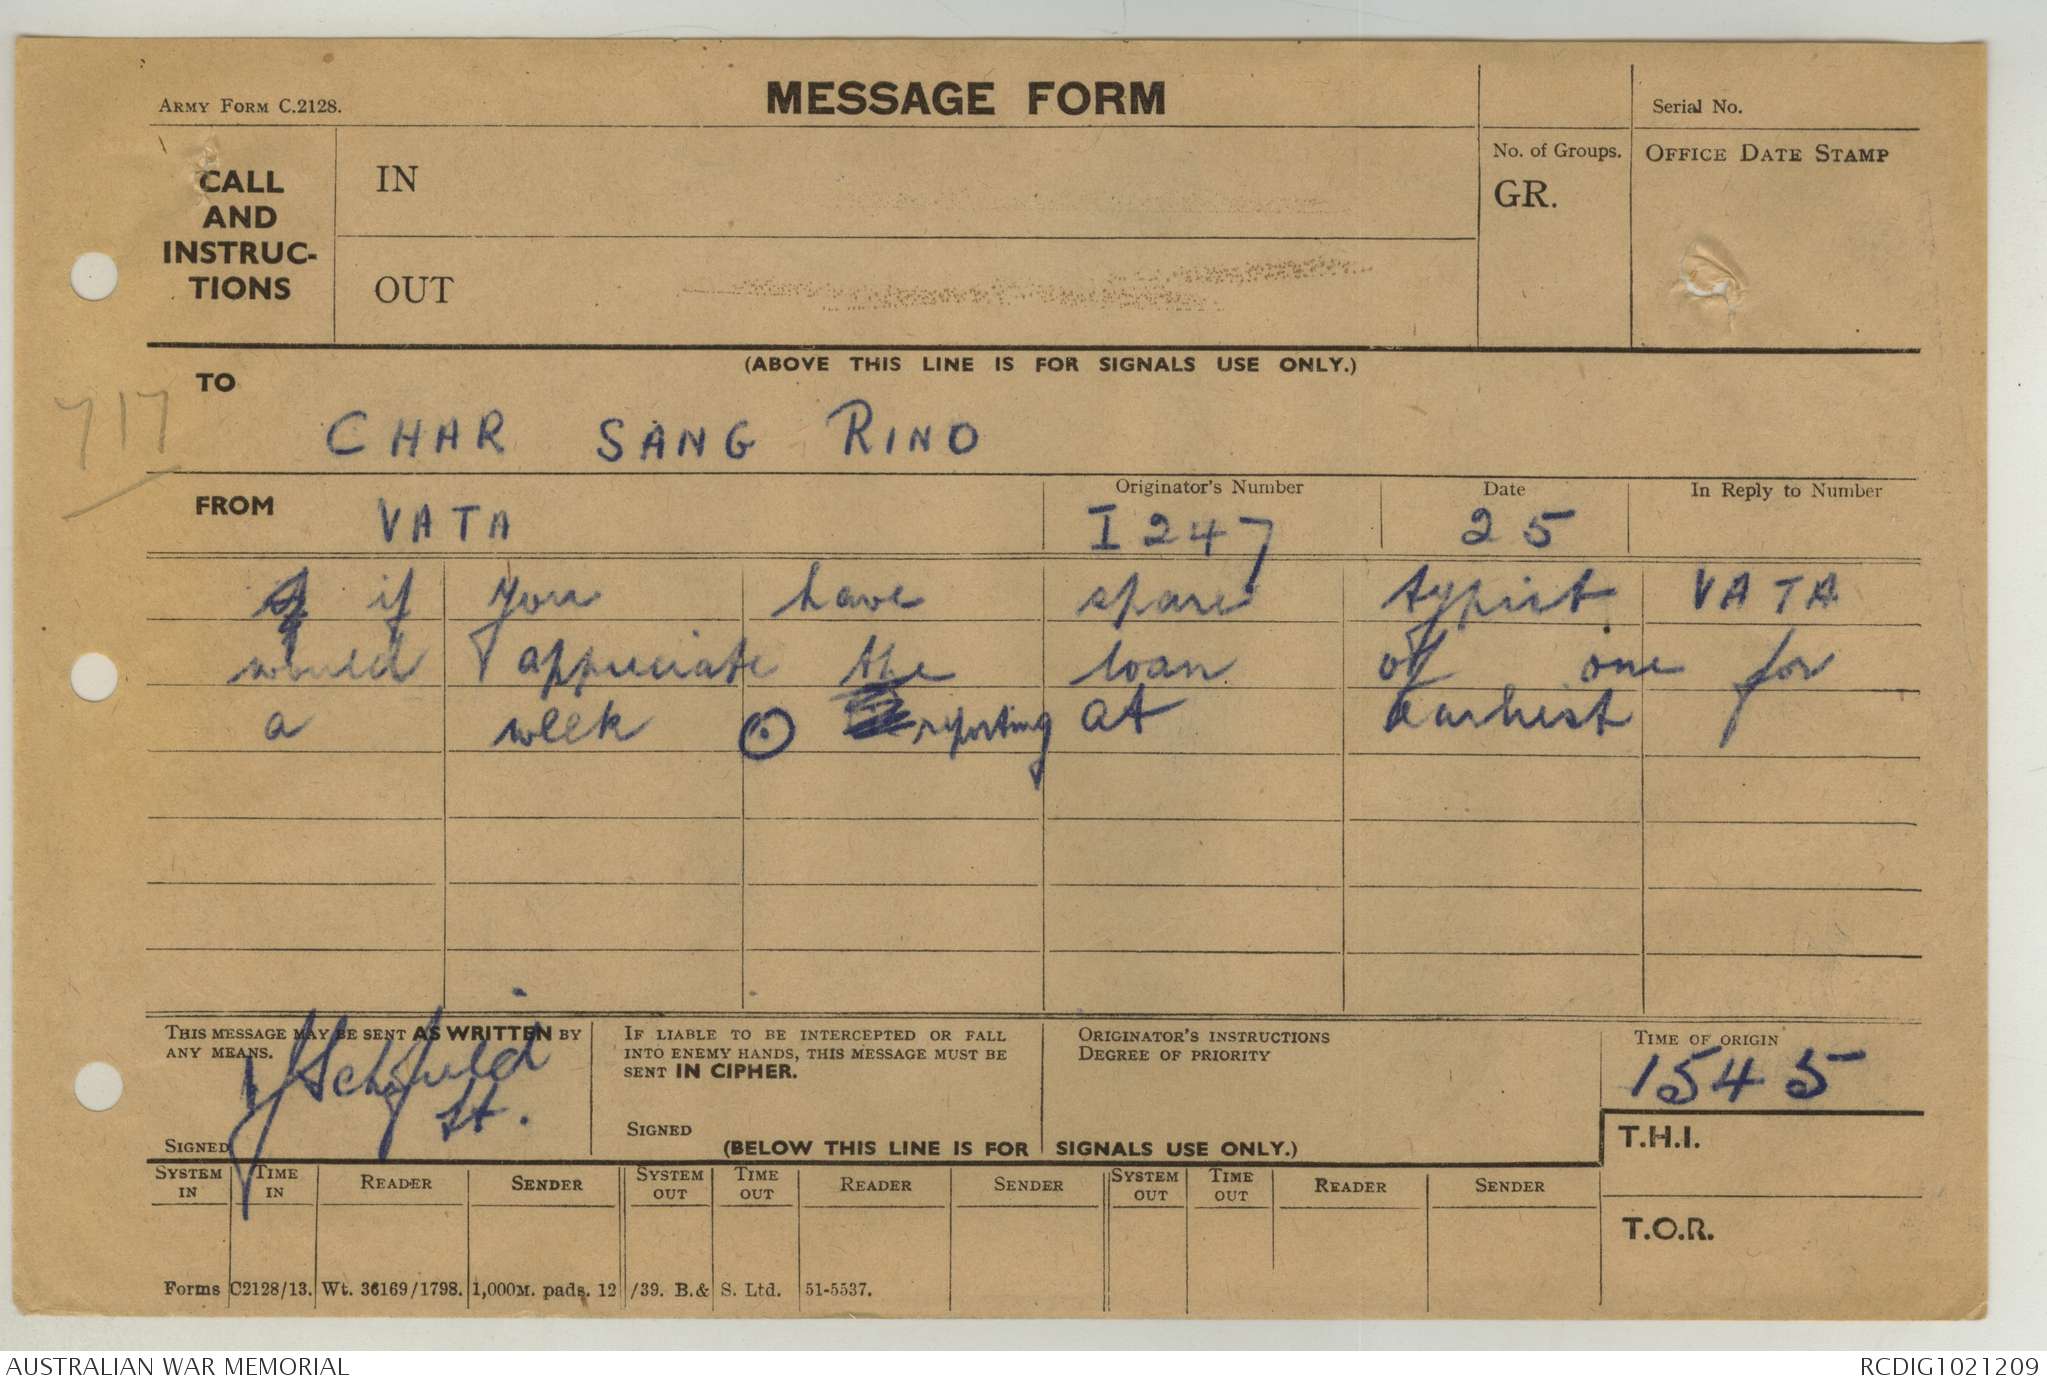 ARMY FORM C.2128.
MESSAGE FORM
Serial No.
CALL AND INSTRUC-TIONS
IN
No. of Groups.
GR.
OFFICE DATE STAMP
OUT
(ABOVE THIS LINE IS FOR SIGNALS USE ONLY.)
717
TO
CHAR SANG RINO
FROM
VATA
Originator's Number
I 247
Date
25
In Reply to Number
if you have spare typist VATA
would appreciate the loan of one for
a week reporting at earliest
THIS MESSAGE MAY BE SENT AS WRITTEN BY
ANY MEANS.
Lt.
SIGNED
IF LIABLE TO BE INTERCEPTED OR FALL
INTO ENEMY HANDS, THIS MESSAGE MUST BE
SENT IN CIPHER.
SIGNED
ORIGINATOR'S INSTRUCTIONS
DEGREE OF PRIORITY
TIME OF ORIGIN
1545
(BELOW THIS LINE IS FOR SIGNALS USE ONLY.)
T.H.I.
SYSTEM IN TIME IN READER SENDER SYSTEM OUT TIME OUT READER SENDER SYSTEM OUT TIME OUT READER SENDER
T.O.R.
Forms C2128/13. Wt. 36169/1798. 1,000M. pads. 12/39. B.& S. Ltd. 51-5537.
AUSTRALIAN WAR MEMORIAL
RCDIG1021209